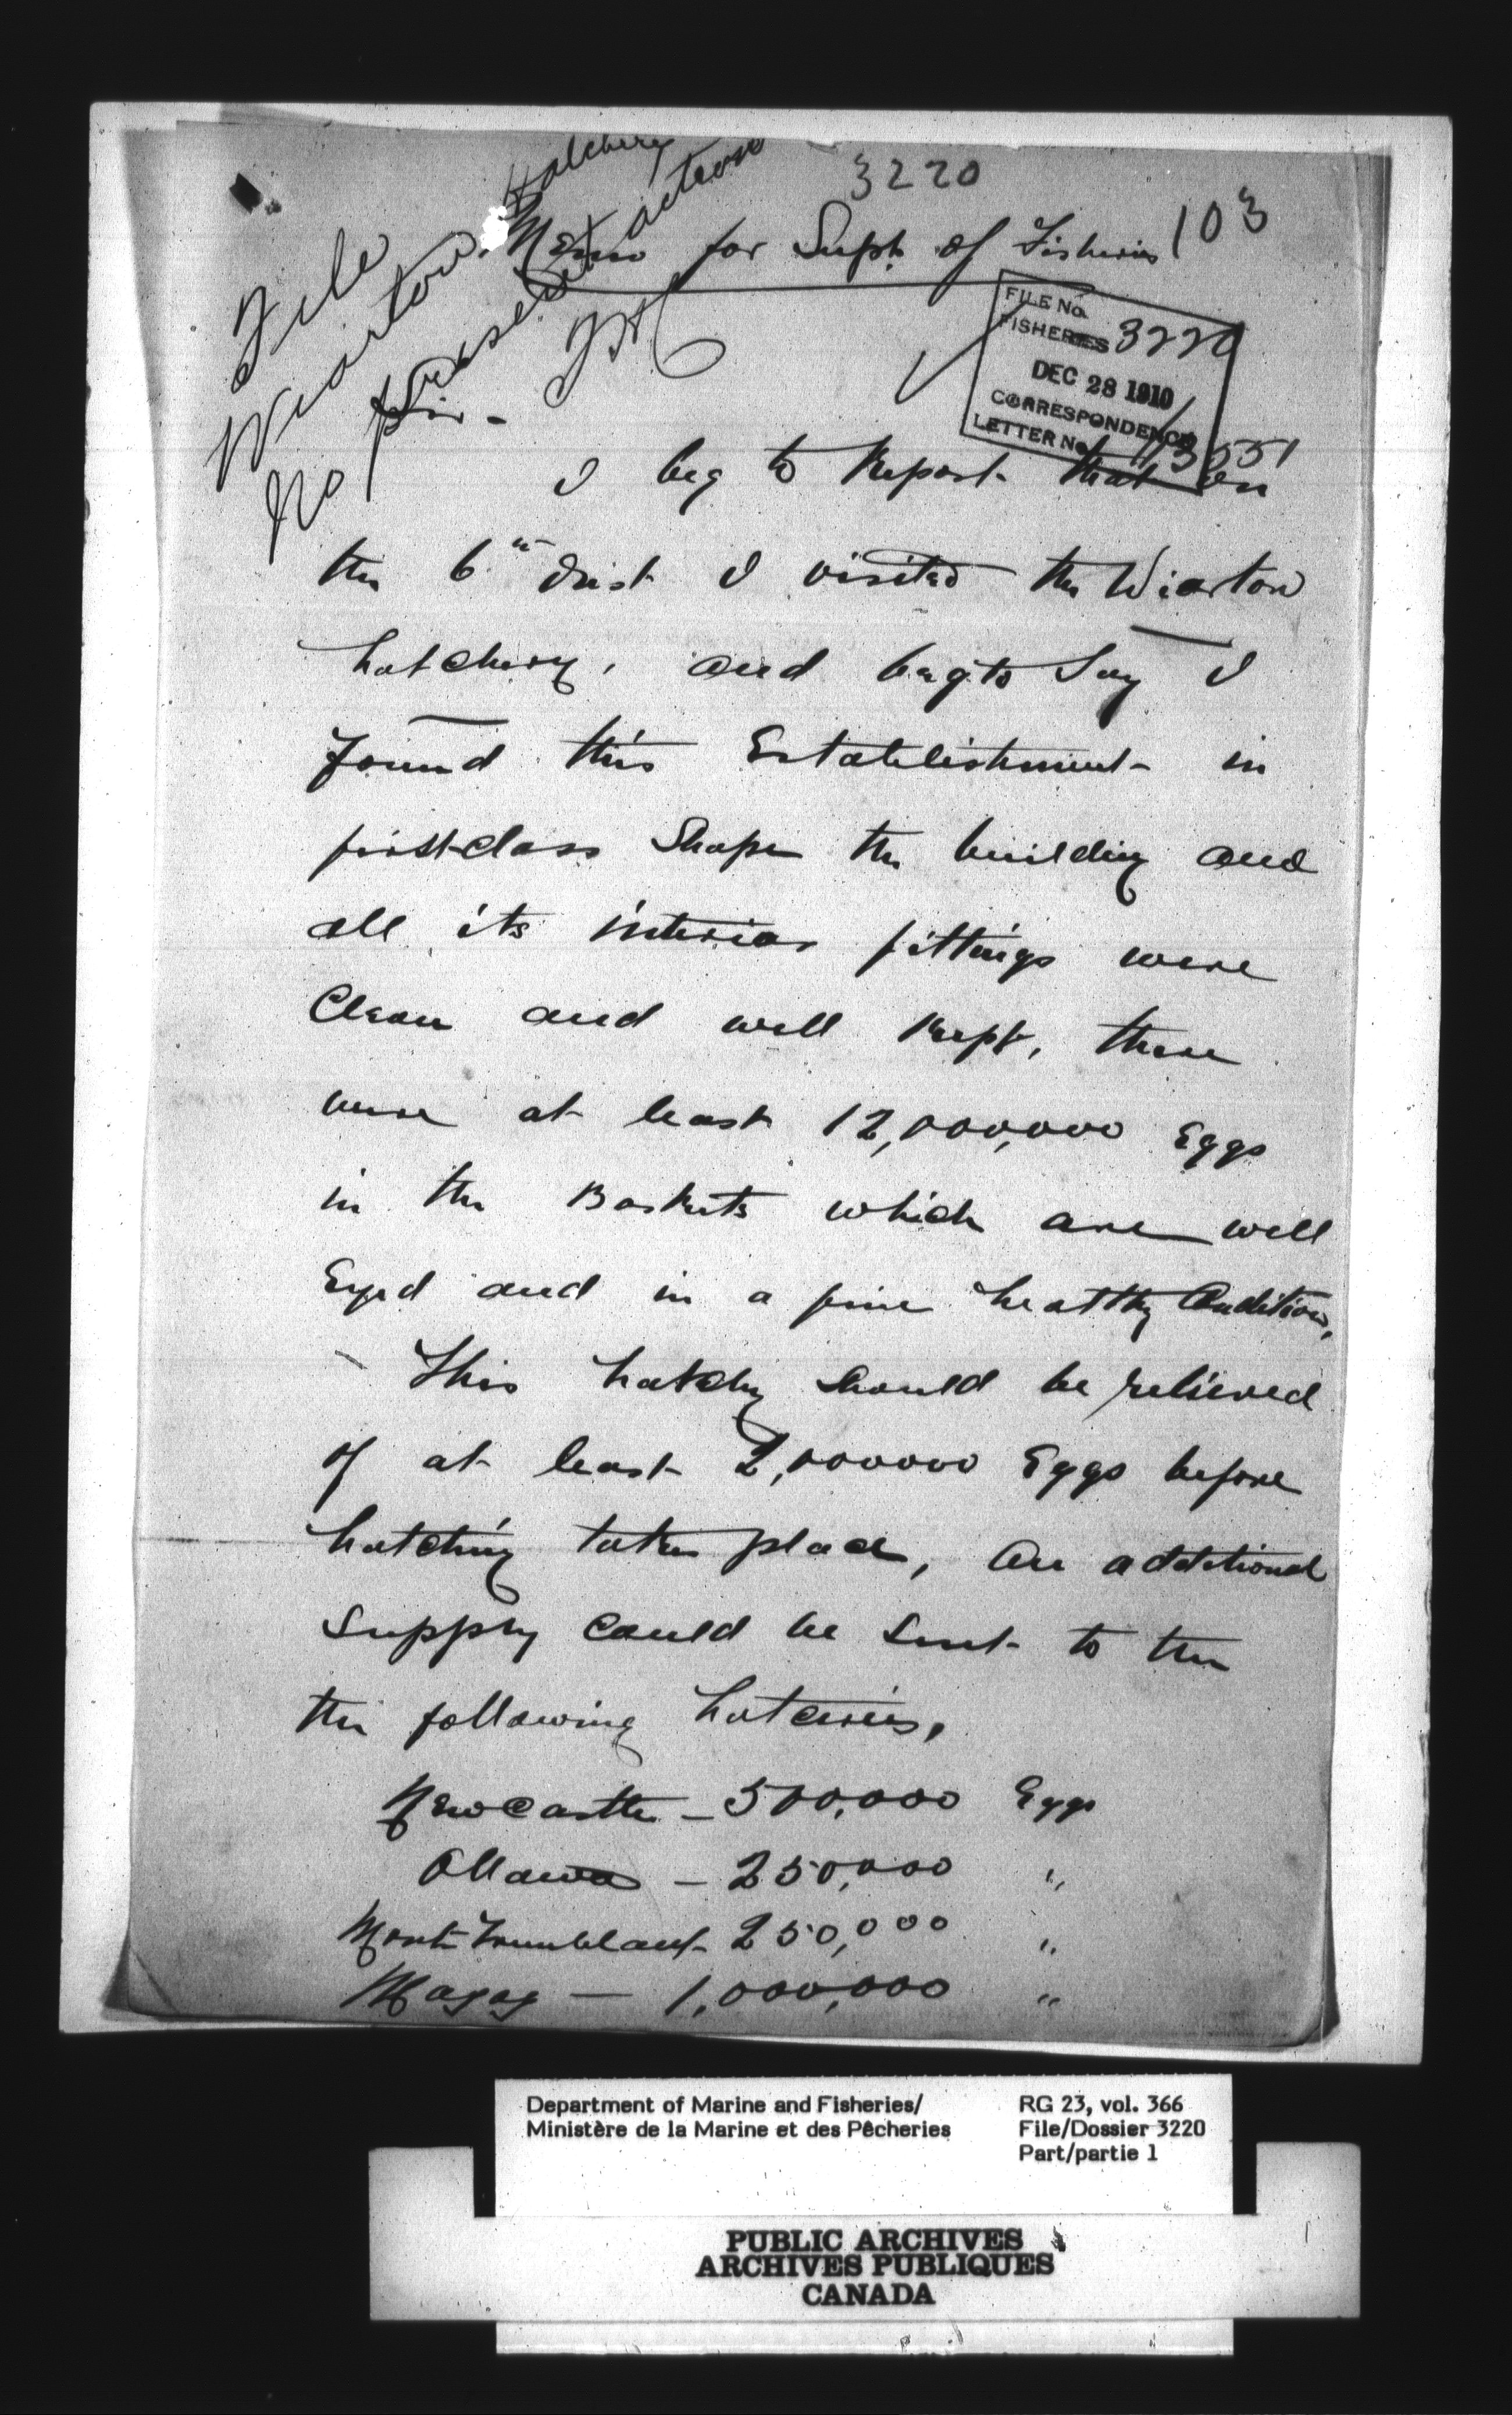 3220
103
Memo for Supt. of Fisheries
File
Wiarton Hatchery
No present action
FILE No.
FISHERIES 3220
DEC 28 1910
CORRESPONDENCE
LETTER No.
Sir -
I beg to Report that on
the 6th Inst I visited the Wiarton
hatchery, and beg to Say I
found this Establishment in
first class Shape the building and
all its interior fittings were
Clean and well Kept, there
were at least 12,000,000 Eggs
in the Baskets which are well
Eyed and in a fine healthy Condition,
This hatchy should be relieved
of at least 2,000000 Eggs before
hatching takes place, An additional
Supply Could be Sent to the
the following hatceries,
Newcastle - 500,000 Eggs
Ottawa - 250,000 "
Mont Tremblant - 250,000 "
Magog - 1,000,000 "
Department of Marine and Fisheries/
Ministère de la Marine et des Pêcheries
RG 23, vol. 366
File/Dossier 3220
Part/partie 1
PUBLIC ARCHIVES
ARCHIVES PUBLIQUES
CANADA